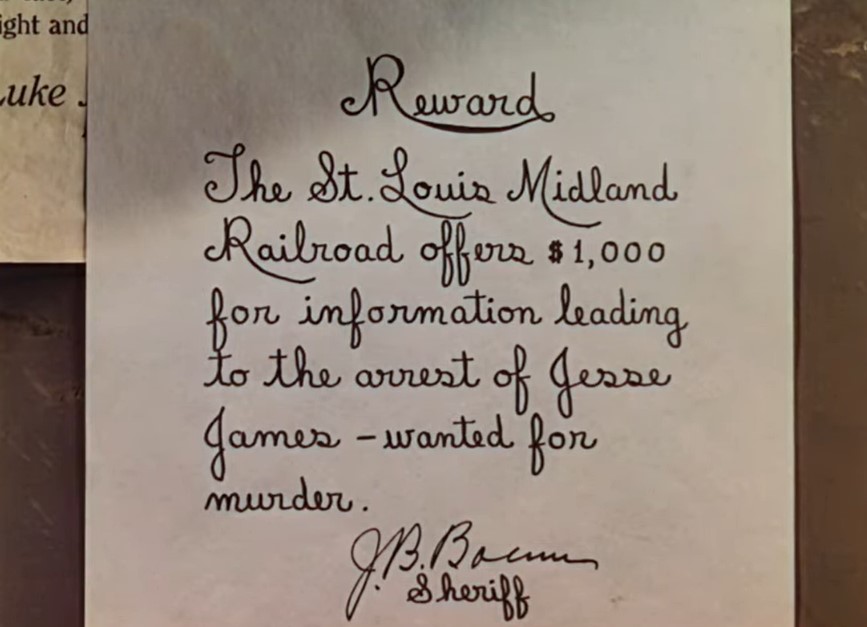 ight and
Luke
Reward
The St. Louis Midland
Railroad offers $1,000
for information leading
to the arrest of Jesse
James - wanted for
murder.
J.B.
Sheriff